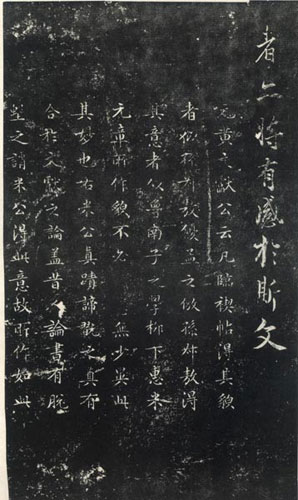 者亦將有感於斯文
元黃文獻公云凡臨禊帖得其貌
者優孟之似孫叔敖得
其意者似魯南子之學柳下惠米
元章所作貌不必無少異此
其妙也右米公真蹟諦翫之真有
合於文獻之論蓋昔人論書有脫
墼之謂米公得此意故所作如此